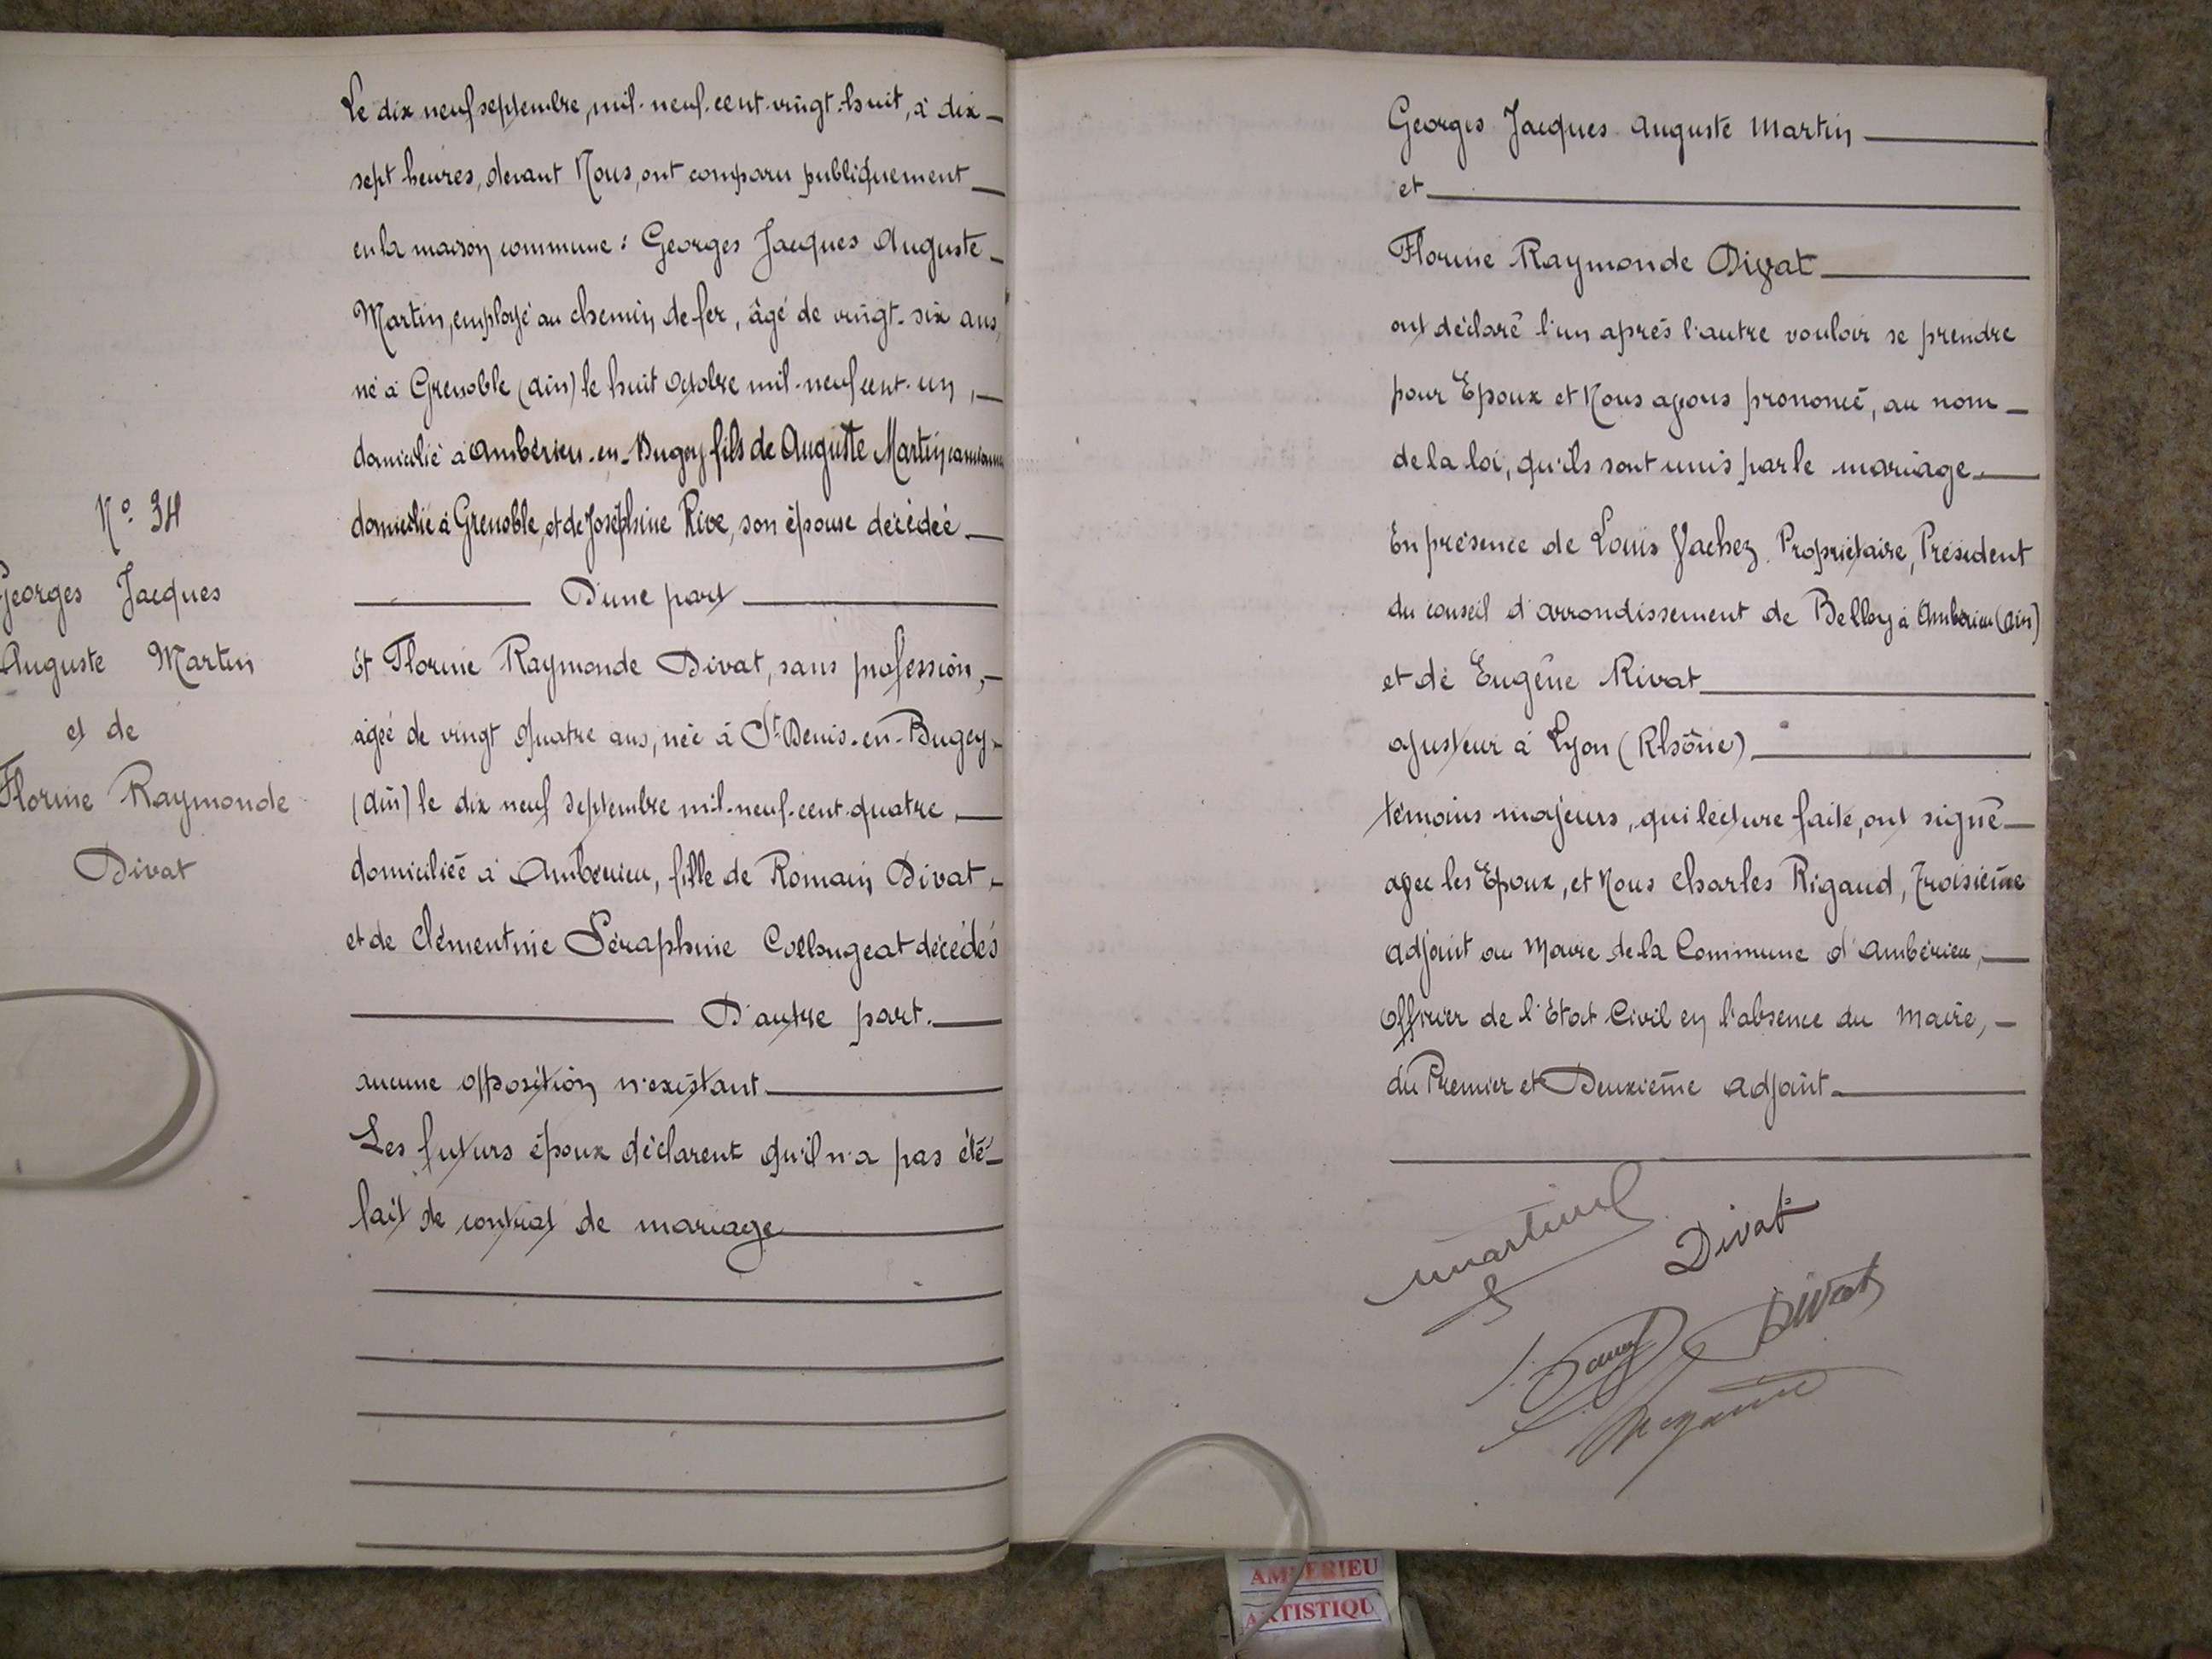 Le dix neuf septembre, mil-neuf-cent-vingt-huit, à dix
sept heures, devant Nous, ont comparu publiquement
en la maison commune : Georges Jacques Auguste
Martin, employé au chemin de fer, âgé de vingt-six ans,
né à Grenoble (ain) le huit Octobre mil-neuf cent-un,
domicilié à Ambérieu-en-Bugey fils de Auguste Martin
domicilié à Grenoble, et de Joséphine Rive, son épouse décédée
D'une part
Et Florine Raymonde Divat, sans profession,
agée de vingt quatre ans, née à St-Denis-en-Bugey,
(ain) le dix neuf septembre mil-neuf-cent-quatre
domiciliée à Ambérieu, fille de Romain Divat,
et de Clémentine Séraphine Collongeat décédés
D'autre part.
aucune opposition n'existant
Les futurs époux déclarent qu'il n'a pas été
fait de contrat de mariage
N° 34
Georges Jacques
Auguste Martin
et de
Florine Raymonde
Divat
Georges Jacques Auguste Martin
et
Florine Raymonde Divat
ont déclaré l'un après l'autre vouloir se prendre
pour Epoux et Nous avons prononcé, au nom
de la loi, qu'ils sont unis par le mariage
En présence de Louis Vachez. Propriétaire, Président
du conseil d'arrondissement de Belley à Ambérieu (ain)
et de Eugène Rivat
ajusteur à Lyon (Rhône)
témoins majeurs, qui lecture faite, ont signé
avec les Epoux, et Nous Charles Rigaud, Troisième
adjoint au Maire de la Commune d'Ambérieu,
Officier de l'Etat Civil en l'absence du Maire,
du Premier et Deuxième adjoint
Divat
Divat
AMBERIEU
ARTISTIQU